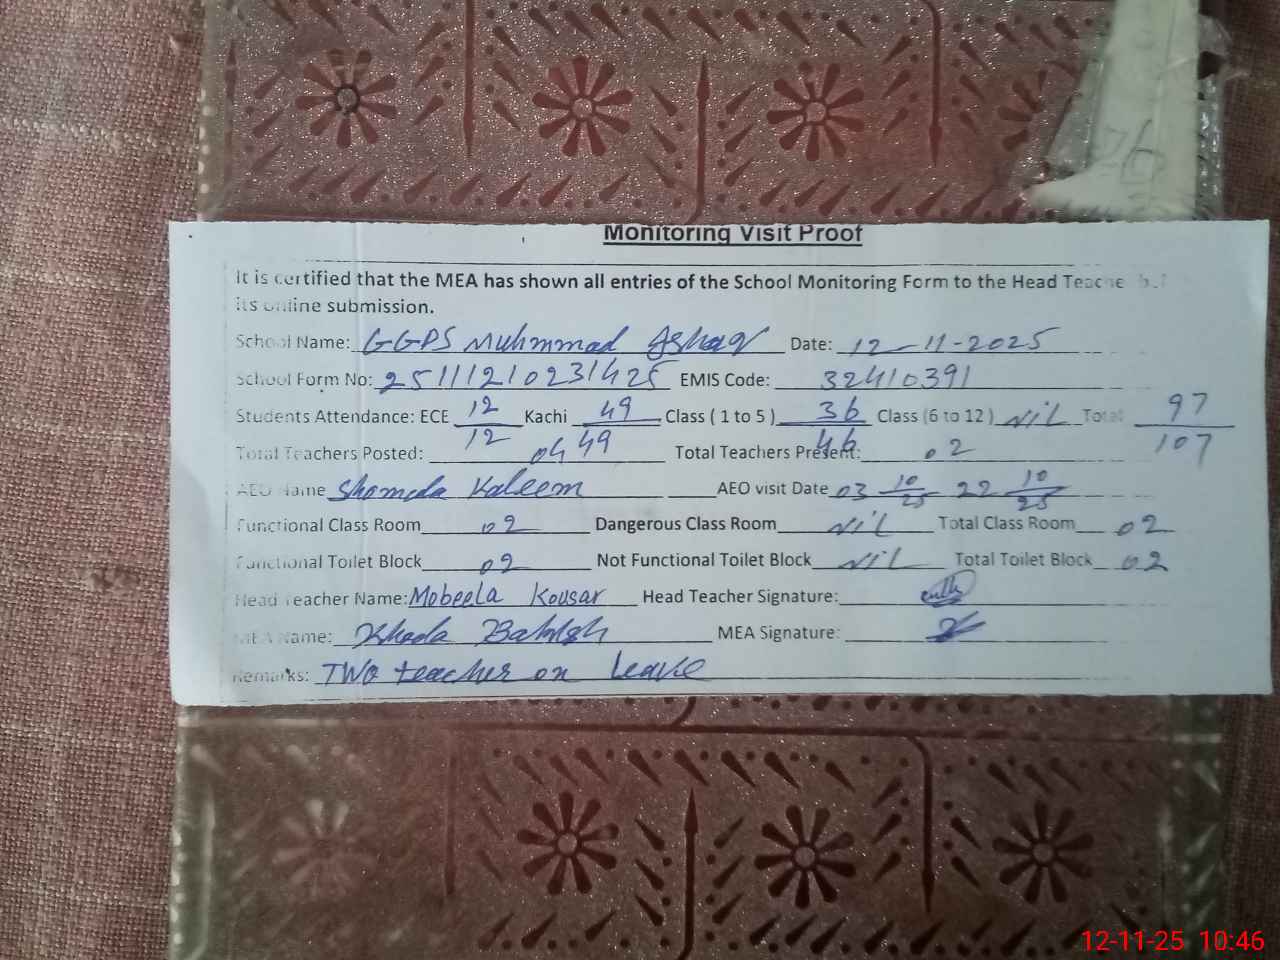 Monitoring Visit Proof
It is certified that the MEA has shown all entries of the School Monitoring Form to the Head Teache
its online submission.
School Name: GGPS Muhmmad Ishaq Date: 12-11-2025
School Form No: 25111210231425 EMIS Code: 32410391
Students Attendance: ECE 12/12 Kachi 49/49 Class ( 1 to 5 ) 36/46 Class (6 to 12 ) Nil Total 97/107
Total Teachers Posted: 04 Total Teachers Present: 02
AEO Name Shomeda Kaleem AEO visit Date 03 10/25 22 10/25
Functional Class Room 02 Dangerous Class Room Nil Total Class Room 02
Functional Toilet Block 02 Not Functional Toilet Block Nil Total Toilet Block 02
Head Teacher Name: Mobeela Kousar Head Teacher Signature:
MEA Name: Khada Bakhsh MEA Signature:
Remarks: TWO teacher on leave
12-11-25 10:46